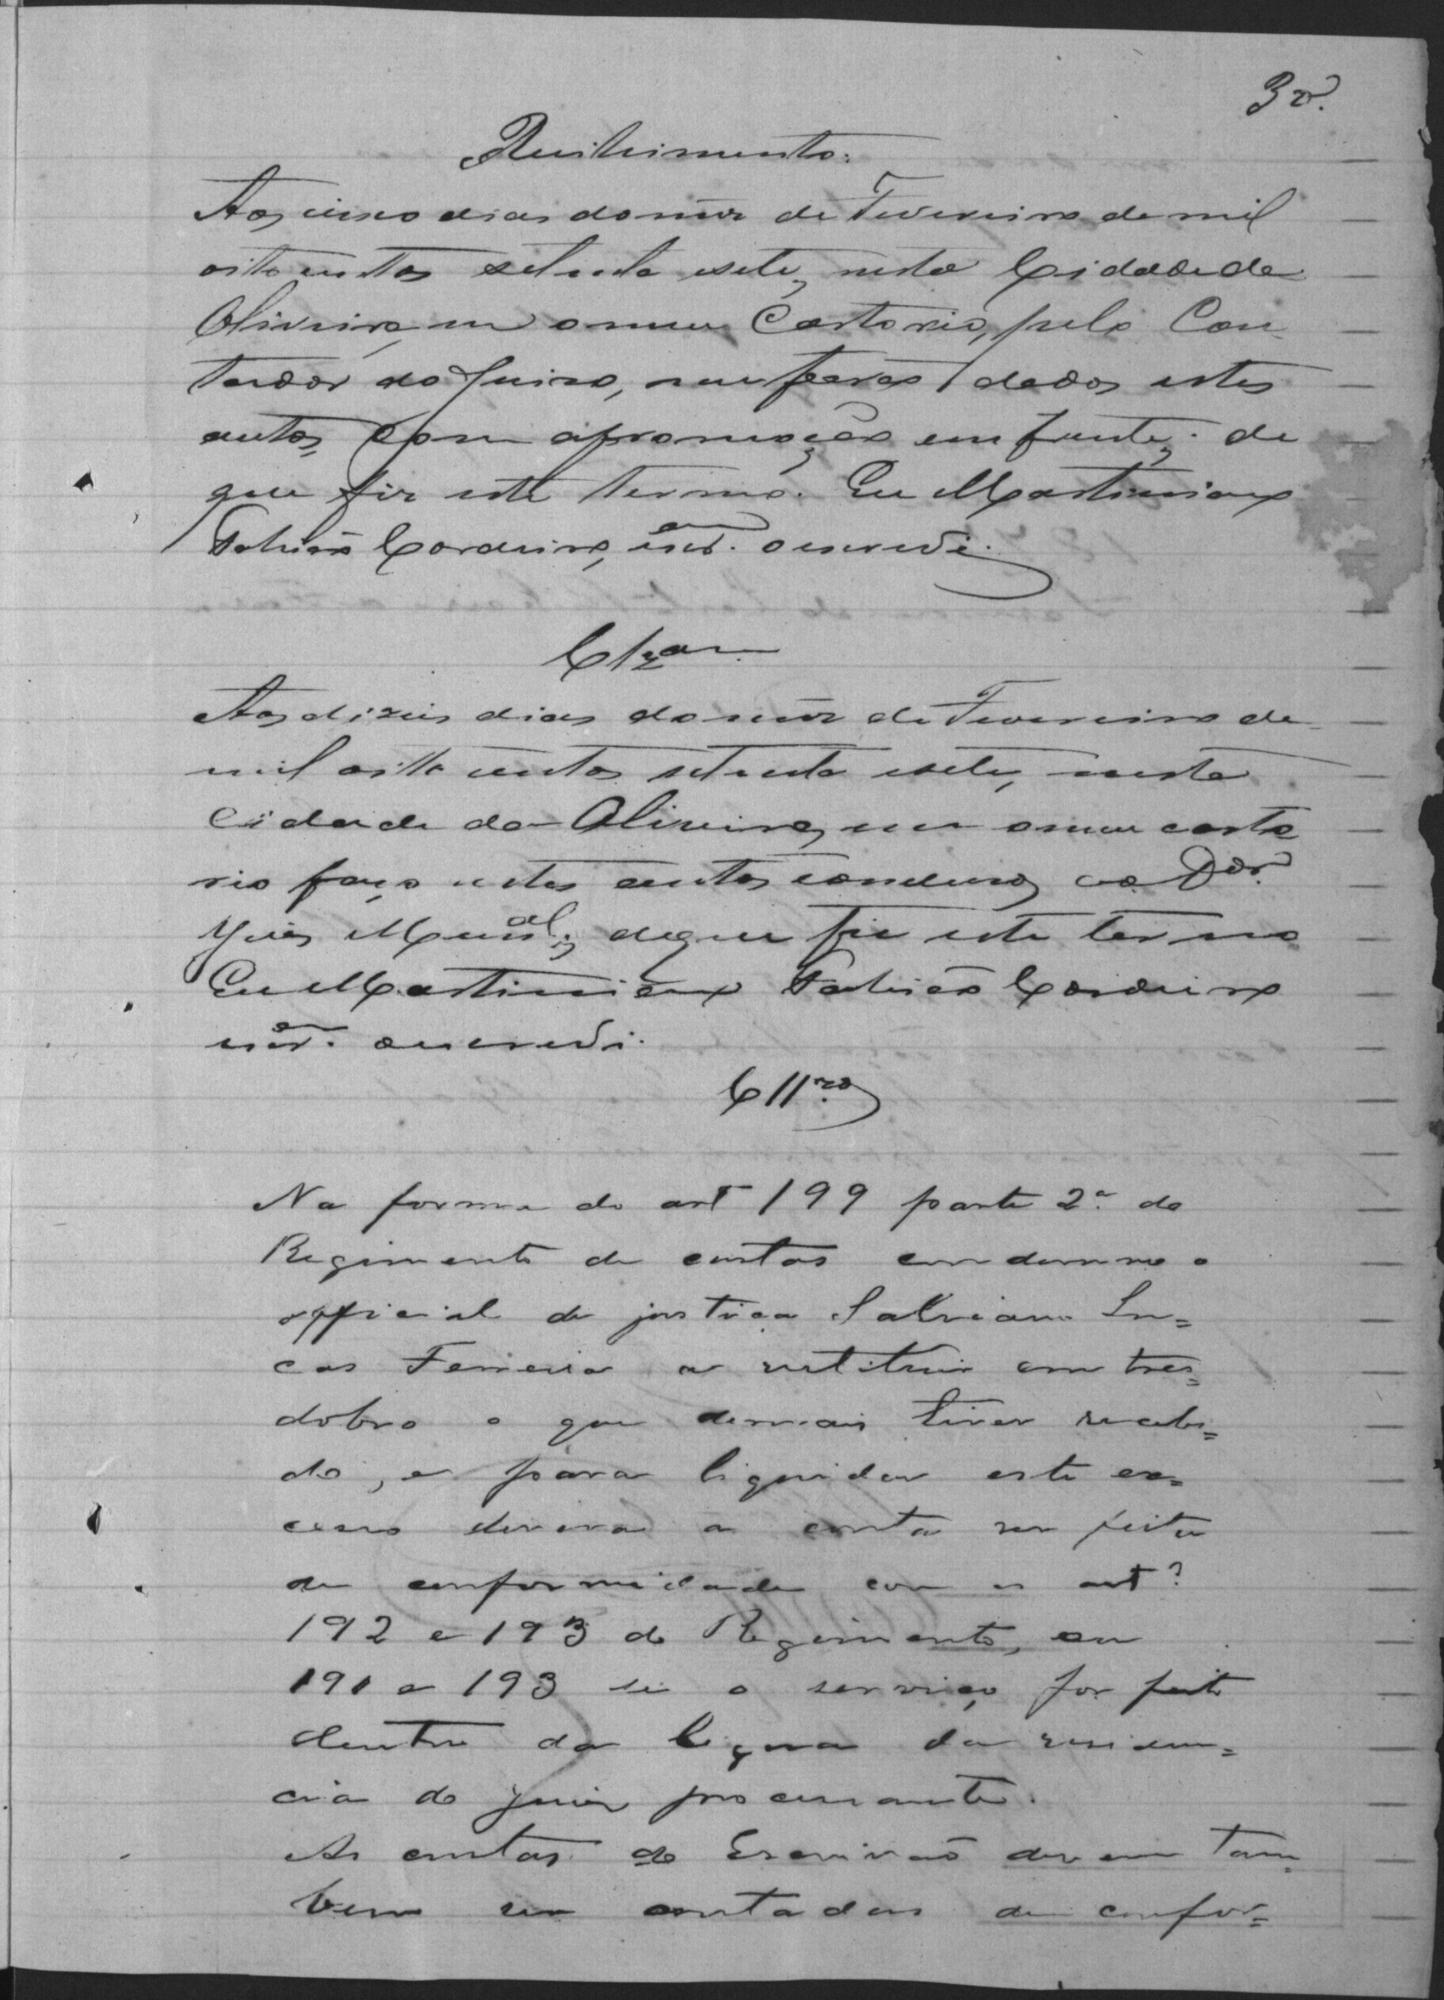 3v.
Recebimento.
Aos cinco dias do mez de Fevereiro de mil
oito centos setenta e sete, nesta Cidade da
Oliveira, em o meu Cartorio, pelo Con
tador do Juizo, me forão dados estes
autos com a promoção em frente; de
que fiz este termo. Eu Martiniano
Fabião Cordeiro, escr.am o escrevi.
Clzam
Aos dizeis dias do mez de Fevereiro de
mil oitto centos setenta e sete, nesta
Cidade da Oliveira, em o meu carto
rio faço estes autos concluzos ao Dor.
Juiz Munal.; de que fiz este termo
Eu Martiniano Fabião Cordeiro
escr.am o escrevi.
Cllzos
Na forma do art 199 parte 2.a do
Regimento de custas condemno o
official de justiça Salviano Lu=
cas Ferreira a restituir em tres=
dobro o que demais tiver recebi=
do, e para liquidar este ex=
cesso deverá a conta ser feita
de conformidade com os art.s
192 e 193 do Regimento, ou
191 e 193 se o serviço for feito
dentro da legoa da residen=
cia do juiz processante.
As custas do Escrivão devem tam=
bem ser contadas de confor=